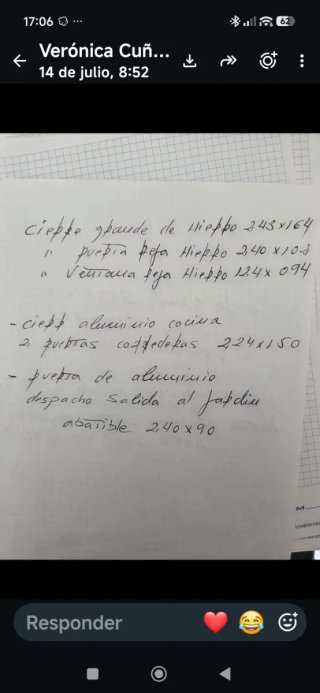 17:06
62
Verónica Cuñ...
14 de julio, 8:52
cieppe gpaude de Hieppo 243x164
" puepta Reja Hieppo 2,40 x 102
" Ventana Reja Hieppo 124 x 094
- ciepp aluminio cocina
2 pueptas coppedepas 2,24 x 150
- puepta de aluminio
despacho Salida al Japdin
abatible 2,40 x 90
Responder